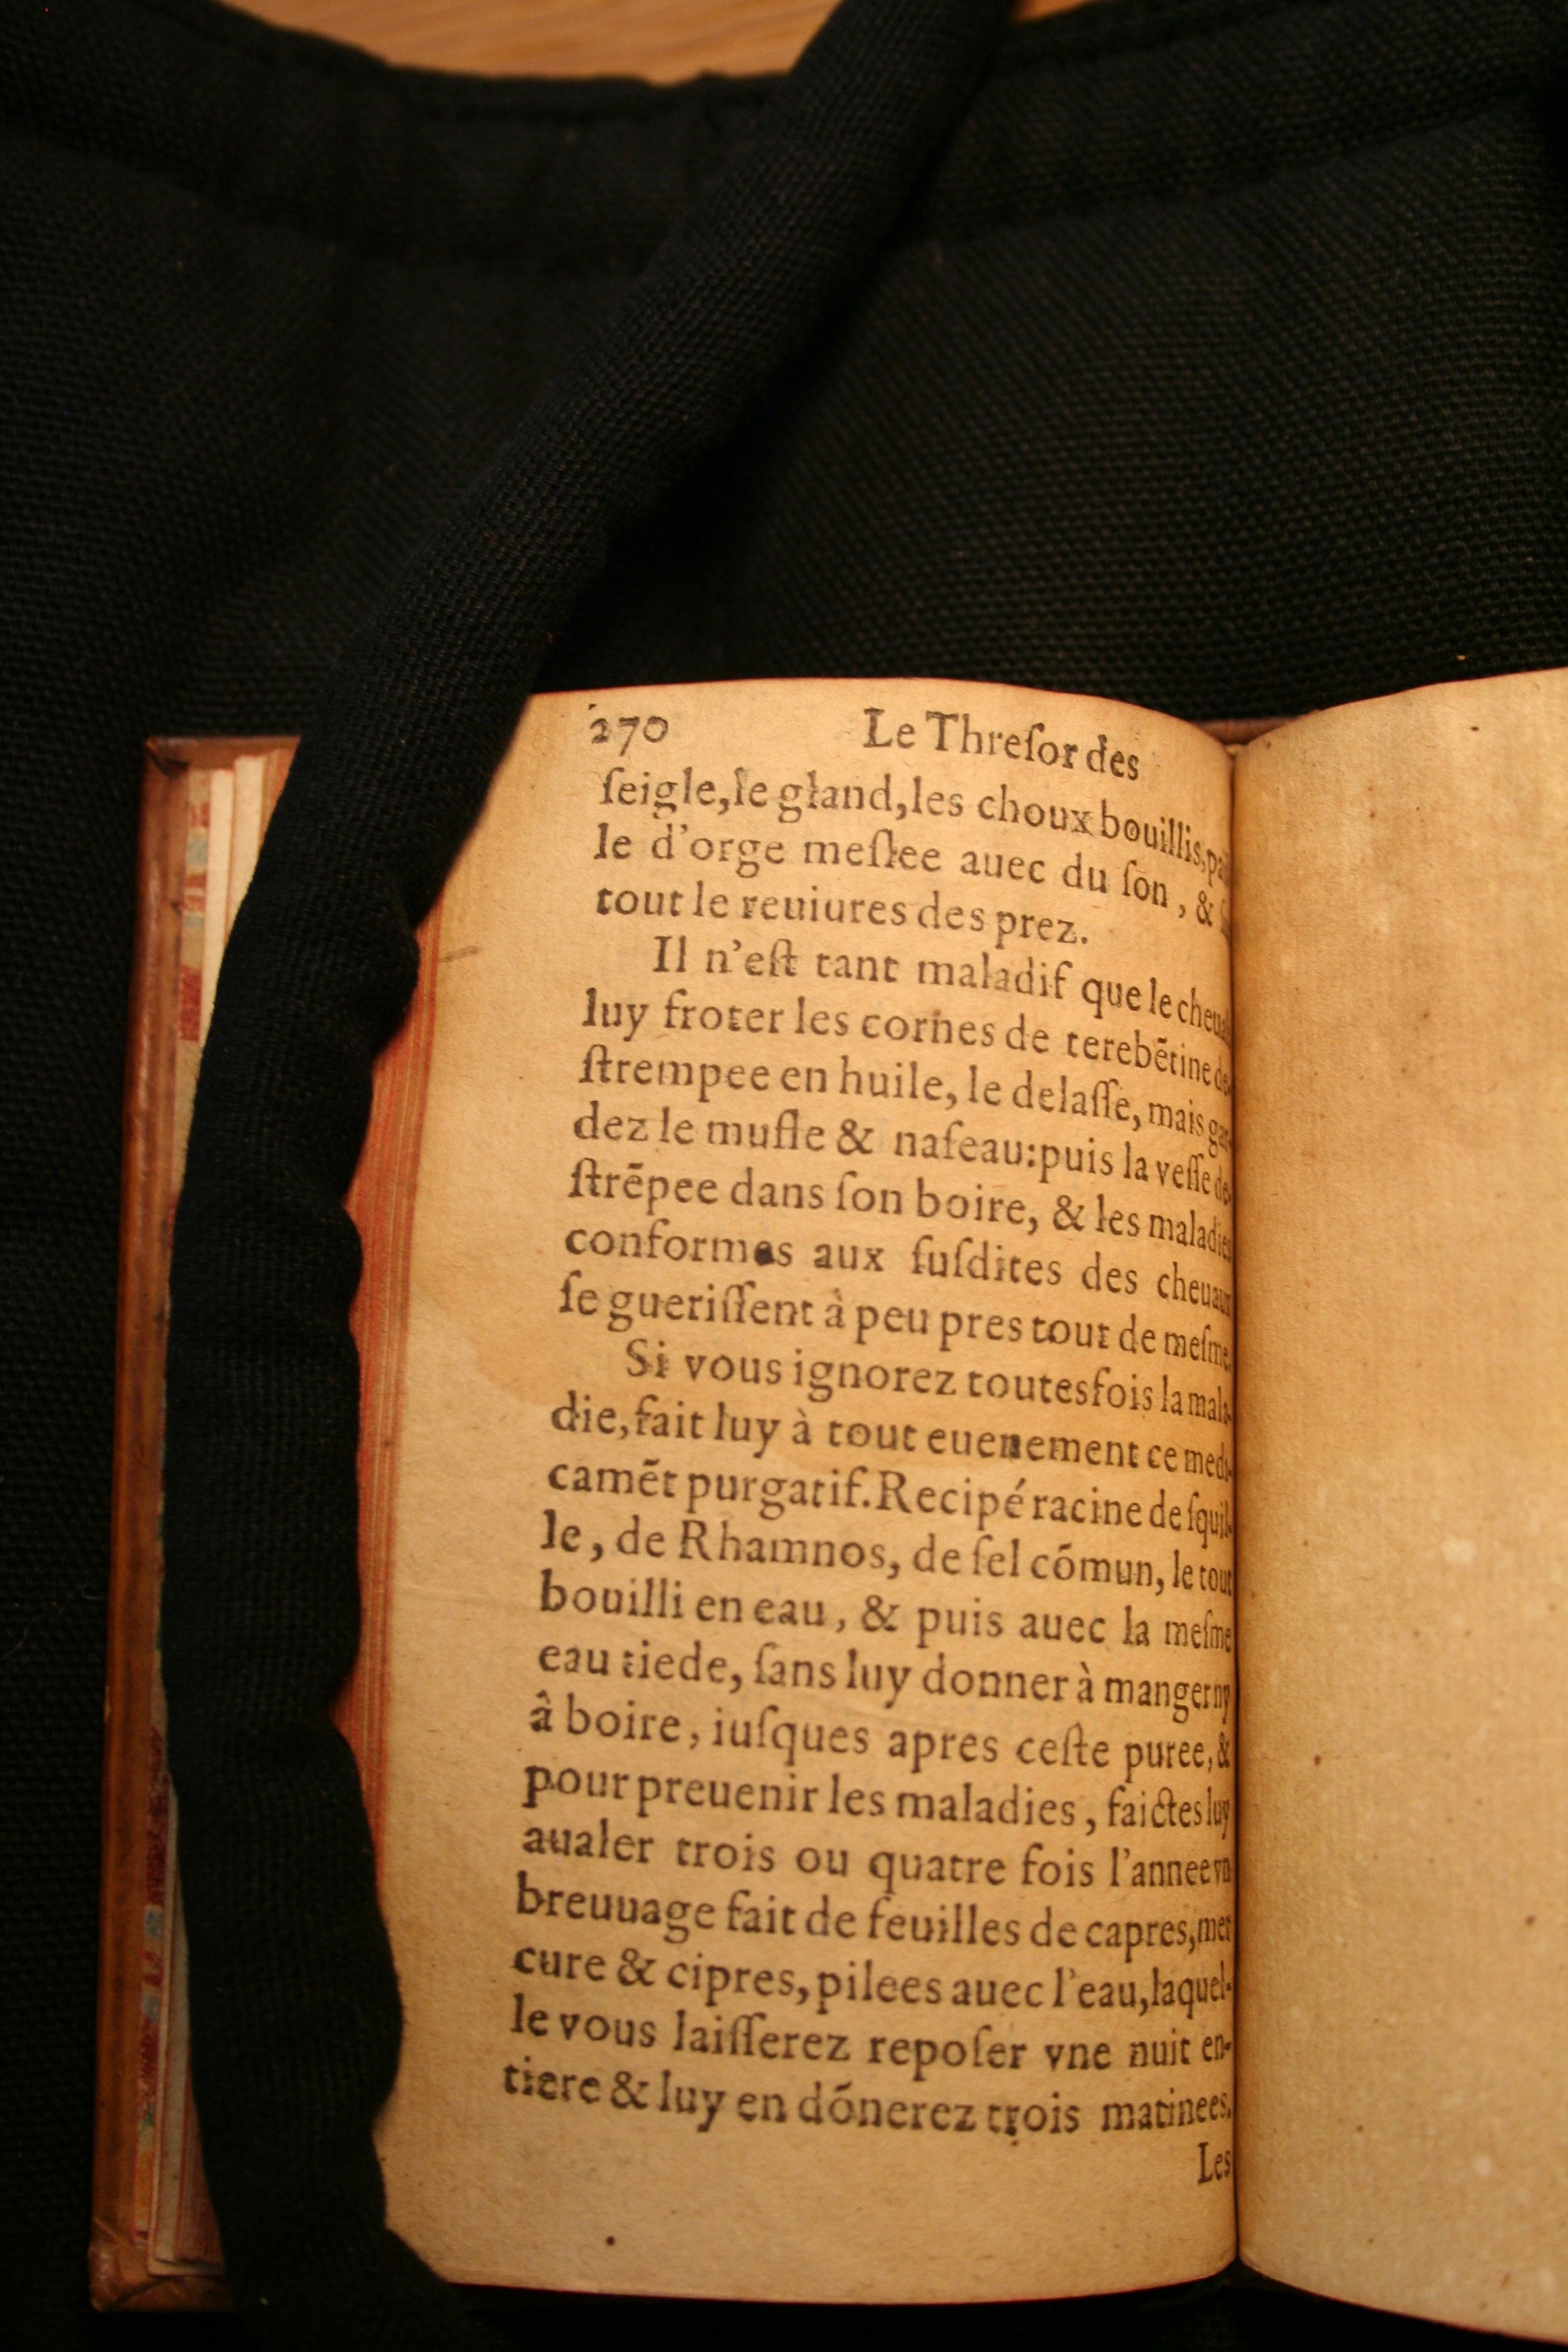 270 Le Threſor des
ſeigle, le gland, les choux bouillis,
le d'orge meſlee auec du ſon, &
tout le reuiures des prez.
Il n'eſt tant maladif que le cheual
luy froter les cornes de terebētine de-
ſtrempee en huile, le delaſſe, mais gar-
dez le mufle & naſeau: puis la veſſe de-
ſtrēpee dans ſon boire, & les maladies
conformes aux ſuſdites des cheuaux
ſe gueriſſent à peu pres tout de meſme.
Si vous ignorez toutesfois la mala-
die, fait luy à tout euenement ce medi-
camēt purgatif. Recipé racine de ſquil-
le, de Rhamnos, de ſel cōmun, le tout
bouilli en eau, & puis auec la meſme
eau tiede, ſans luy donner à manger ny
â boire, iuſques apres ceſte puree, &
pour preuenir les maladies, faictes luy
aualer trois ou quatre fois l'annee vn
breuuage fait de feuilles de capres, mer
cure & cipres, pilees auec l'eau, laquel-
le vous laiſſerez repoſer vne nuit en-
tiere & luy en dōnerez trois matinees.
Les